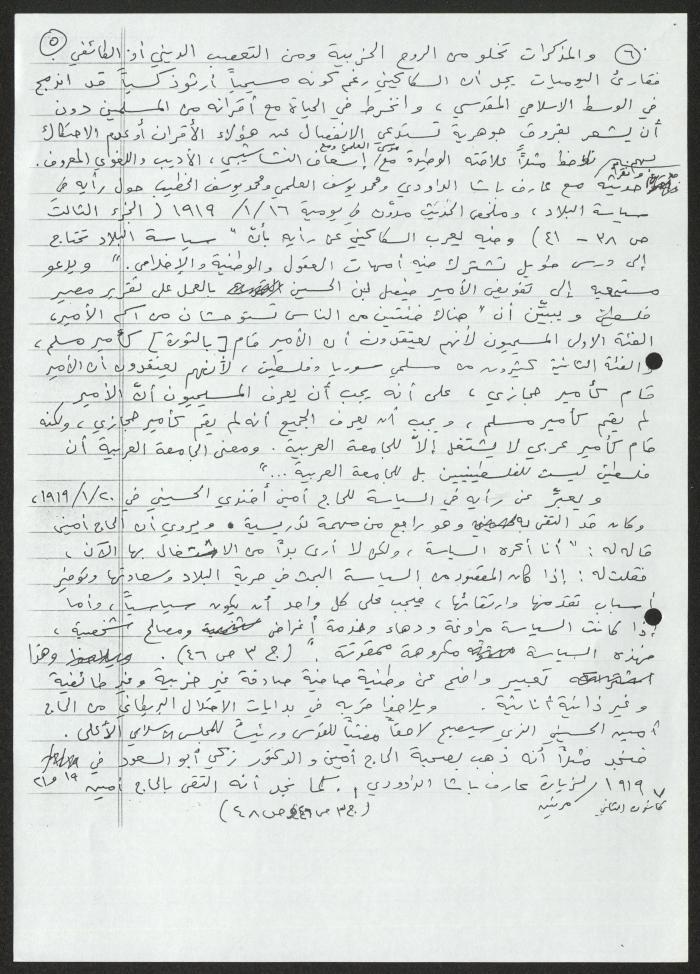 ٥
٦ والمذكرات تخلو من الروح الحزبية ومن التعصب الديني أو الطائفي
فقارئ اليوميات يجد أن السكاكيني رغم كونه مسيحياً أرثوذكسياً قد اندمج
في الوسط الاسلامي المقدسي، وانخرط في الحياة مع أقرانه من المسلمين دون
أن يشعر بفروق جوهرية تستدعي الانفصال عن هؤلاء الأقران أو عدم الاحتكاك
بهم. نلاحظ مثلاً علاقته الوطيدة مع موسى العلمي ومع إسعاف النشاشيبي، الأديب واللغوي المعروف.
ونقرأ حديثه مع عارف باشا الداودي ومحمد يوسف العلمي ومحمد يوسف الخطيب حول رأيه في
سياسة البلاد، وملخص الحديث مدوّن في يومية ١٦/١/١٩١٩ (الجزء الثالث
ص ٣٨ - ٤١) وفيه يعرب السكاكيني عن رأيه بأن "سياسة البلاد تحتاج
إلى درس طويل تشترك فيه أمهات العقول والوطنية والإخلاص." ويدعو
مستمعيه إلى تفويض الأمير فيصل بن الحسين بالعمل على تقرير مصير
فلسطين ويبيّن أن "هناك فئتين من الناس تستوحشان من اسم الأمير،
الفئة الاولى المسيحيون لأنهم يعتقدون أن الأمير قام [بالثورة] كأمير مسلم،
والفئة الثانية كثيرون من مسلمي سوريا وفلسطين، لأنهم يعتقدون أن الأمير
قام كأمير حجازي، على أنه يجب أن يعرف المسيحيون أنّ الأمير
لم يقم كأمير مسلم، ويجب أن يعرف الجميع أنه لم يقم كأمير حجازي، ولكنه
قام كأمير عربي لا يشتغل إلاّ للجامعة العربية. ومعنى الجامعة العربية أن
فلسطين ليست للفلسطينيين بل للجامعة العربية..."
ويعبّر عن رأيه في السياسة للحاج أمين أفندي الحسيني في ٢٠/١/١٩١٩،
وكان قد التقى به وهو راجع من مهمة تدريسية. ويروي أن الحاج أمين
قال له: "أنا أكره السياسة، ولكن لا أرى بداً من الاشتغال بها الآن،
فقلت له: إذا كان المقصود من السياسة البحث في حرية البلاد وسعادتها وتوفير
أسباب تقدمها وارتقائها، فيجب على كل واحد أن يكون سياسياً، وأما
إذا كانت السياسة مراوغة ودهاء وخدمة أغراض ومصالح شخصية،
فهذه السياسة مكروهة ممقوتة." (ج ٣ ص ٤٦). وهذا
تعبير واضح عن وطنية صافية صادقة غير حزبية وغير طائفية
وغير ذاتية أنانية. ويلاحظ قربه في بدايات الاحتلال البريطاني من الحاج
أمين الحسيني الذي سيصبح لاحقاً مفتياً للقدس ورئيساً للمجلس الإسلامي الأعلى.
فنجد مثلاً أنه ذهب بصحبة الحاج أمين والدكتور زكي أبو السعود في
١٩١٩ لزيارة عارف باشا الداوودي. كما نجد أنه التقى بالحاج أمين ١٩ و٢١
كانون الثاني مرتين (ج ٣ ص ٤٦ وص ٤٨)